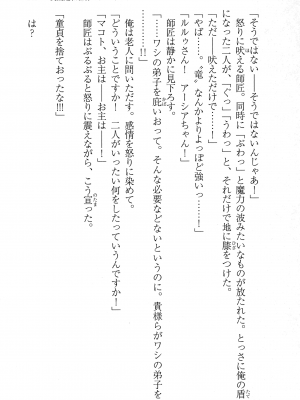 「そうではない――そうではないんじゃあー!」
怒りに吠える師匠。同時に「ぶわっ」と魔力の波みたいなものが放たれた。とっさに俺の盾
になった二人が、「くっ」「うわっ」と、それだけで地に膝をつけた。
「ただ――吠えただけで――」
「やば……。〝竜〟なんかよりよっぽど強いっ……!」
「ルルゥさん! アーシアちゃん!」
師匠は静かに見下ろす。
「……ワシの弟子を庇いおって。そんな必要などないというのに。貴様らがワシの弟子を
…………!!」
俺は老人に問いただす。感情を怒りに染めて。
「どういうことですか! 二人がいったい何をしたっていうんですか!」
「マコト、お主は――お主は――」
師匠はぶるぶると怒りに震えながら、こう宣った。
「童貞を捨ておったな!!」
は?